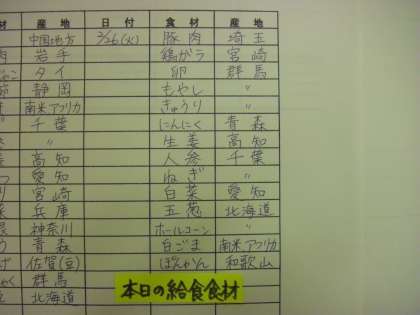 材 産地 日付 食材 産地
中国地方 2/26(火) 豚肉 埼玉
岩手 鶏がら 宮崎
タイ 卵 群馬
静岡 もやし 〃
南米アフリカ きゅうり 〃
千葉 にんにく 青森
〃 生姜 高知
高知 人参 千葉
愛知 ねぎ 〃
宮崎 白菜 愛知
兵庫 玉葱 北海道
神奈川 ホールコーン 〃
青森 白ごま 南米アフリカ
佐賀(豆) ぽんかん 和歌山
群馬
北海道
本日の給食食材